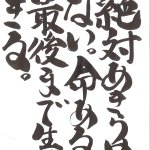 絶対あきらめ
ない。命ある
最後まで生
きる。